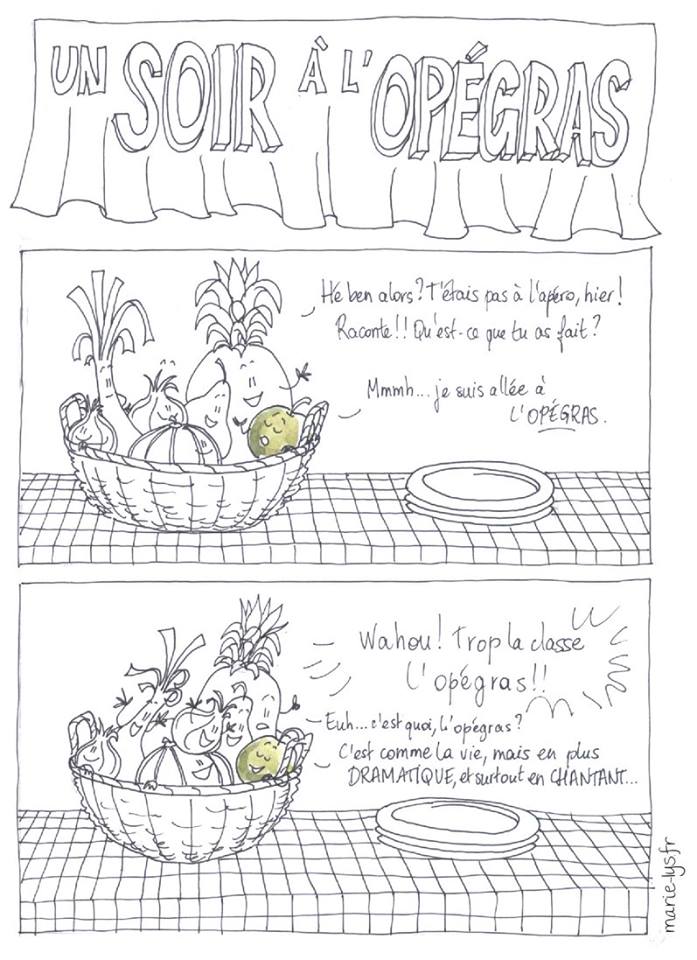 UN SOIR À L'OPÉGRAS
Hé ben alors? T'étais pas à l'apéro, hier!
Raconte!! Qu'est-ce que tu as fait?
Mmmh... je suis allée à
L'OPÉGRAS.
Wahou! Trop la classe
l'opégras!!
Euh... c'est quoi, l'opégras?
C'est comme la vie, mais en plus
DRAMATIQUE, et surtout en CHANTANT...
marie-lys.fr